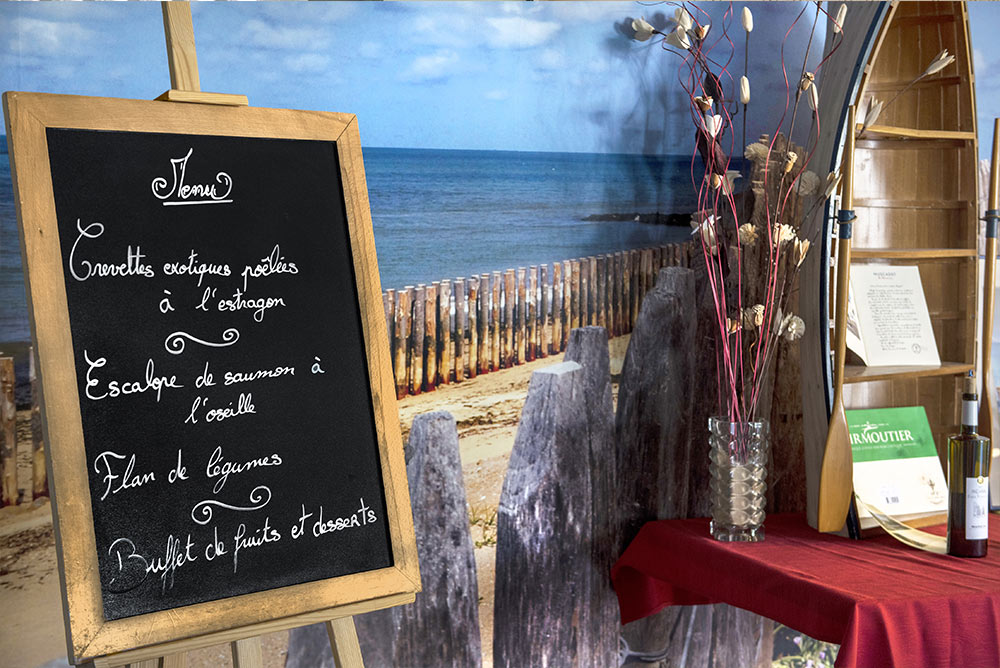 Menu
Crevettes exotiques poêlées
à l'estragon
Escalope de saumon à
l'oseille
Flan de légumes
Buffet de fruits et desserts
IRMOUTIER